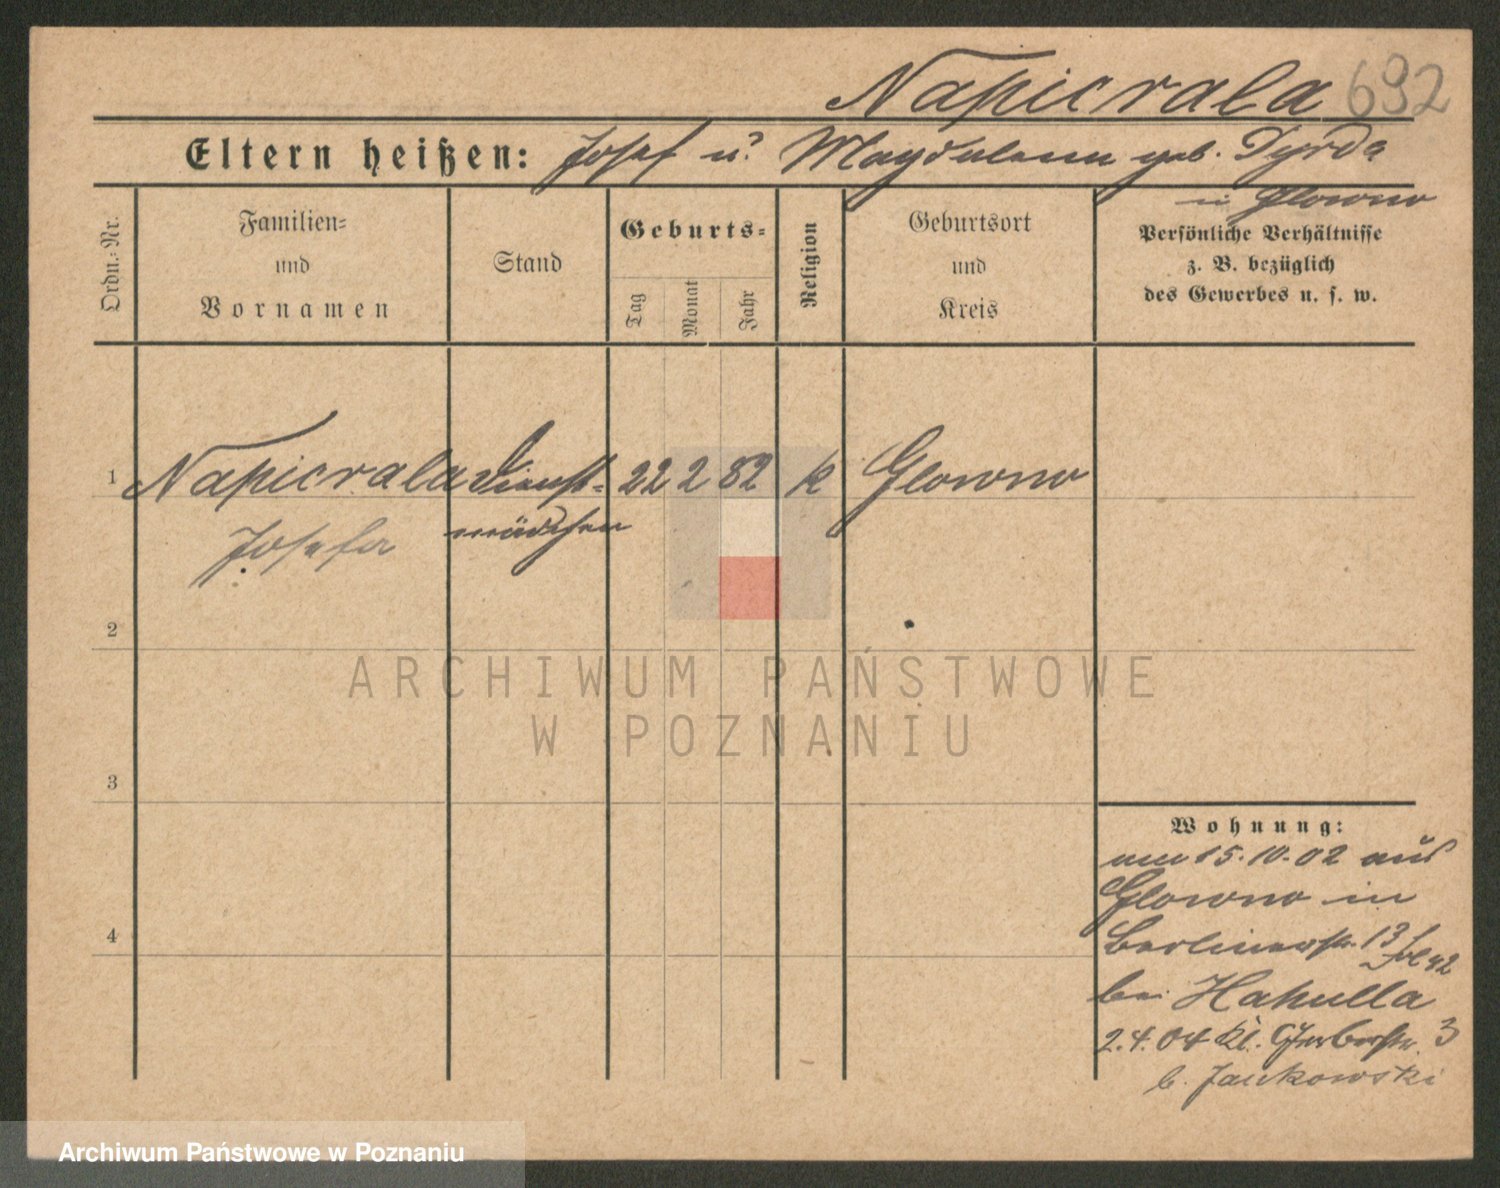 Napierala 692
Eltern heißen: Josef u. Magdalena geb. Dyrda
in Glowno
Ordn.-Nr.
Familien-
und
Vornamen
Stand
Geburts-
Tag
Monat
Jahr
Religion
Geburtsort
und
Kreis
Persönliche Verhältnisse
z. B. bezüglich
des Gewerbes u. s. w.
1 Napierala Dienst- 22 2 82 k Glowno
Josefa mädchen
2
ARCHIWUM PAŃSTWOWE
W POZNANIU
3
4
Wohnung:
am 15.10.02 aus
Glowno in
Berlinerstr. 13
bei Hahulla
2.4.04 Kl. Gerberstr. 3
b. Jankowski
Archiwum Państwowe w Poznaniu